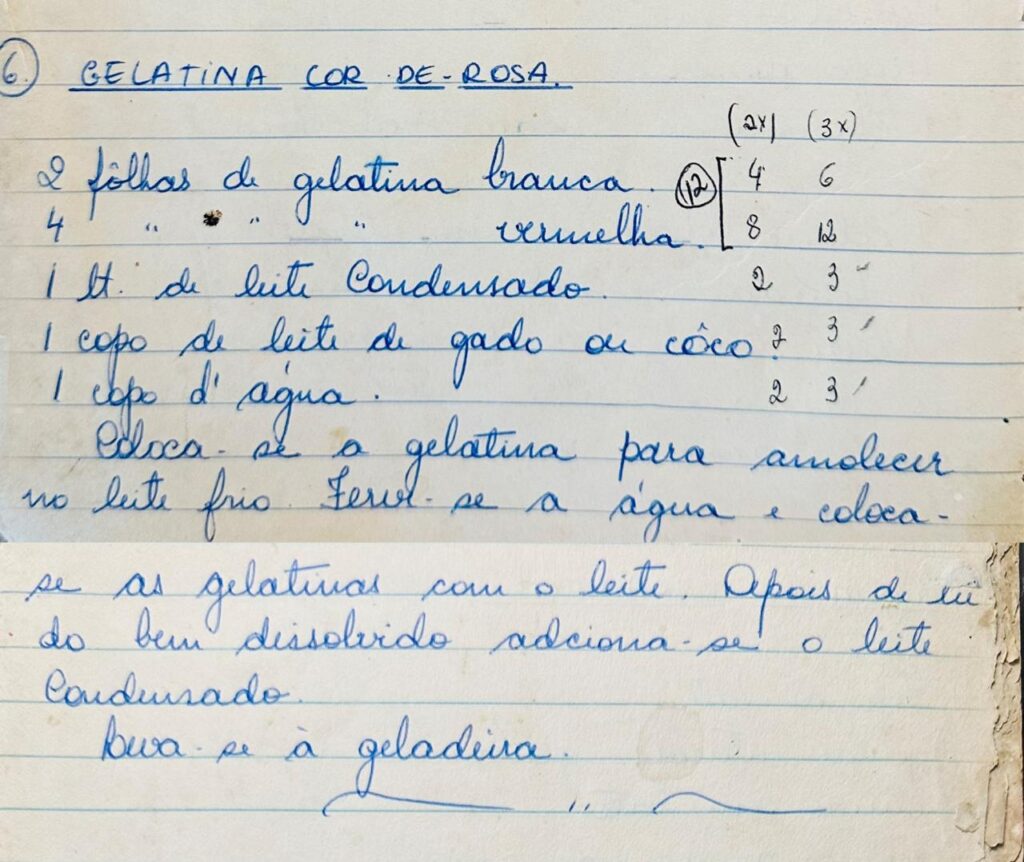 6. GELATINA COR-DE-ROSA.
(2x) (3x)
2 fôlhas de gelatina branca. (12) [ 4 6
4 " " " vermelha. 8 12
1 lt. de leite Condensado. 2 3
1 copo de leite de gado ou côco. 2 3
1 copo d'água. 2 3
Coloca-se a gelatina para amolecer
no leite frio. Ferve-se a água e coloca-
se as gelatinas com o leite. Depois de tu
do bem dissolvido adciona-se o leite
Condensado.
Leva-se à geladeira.